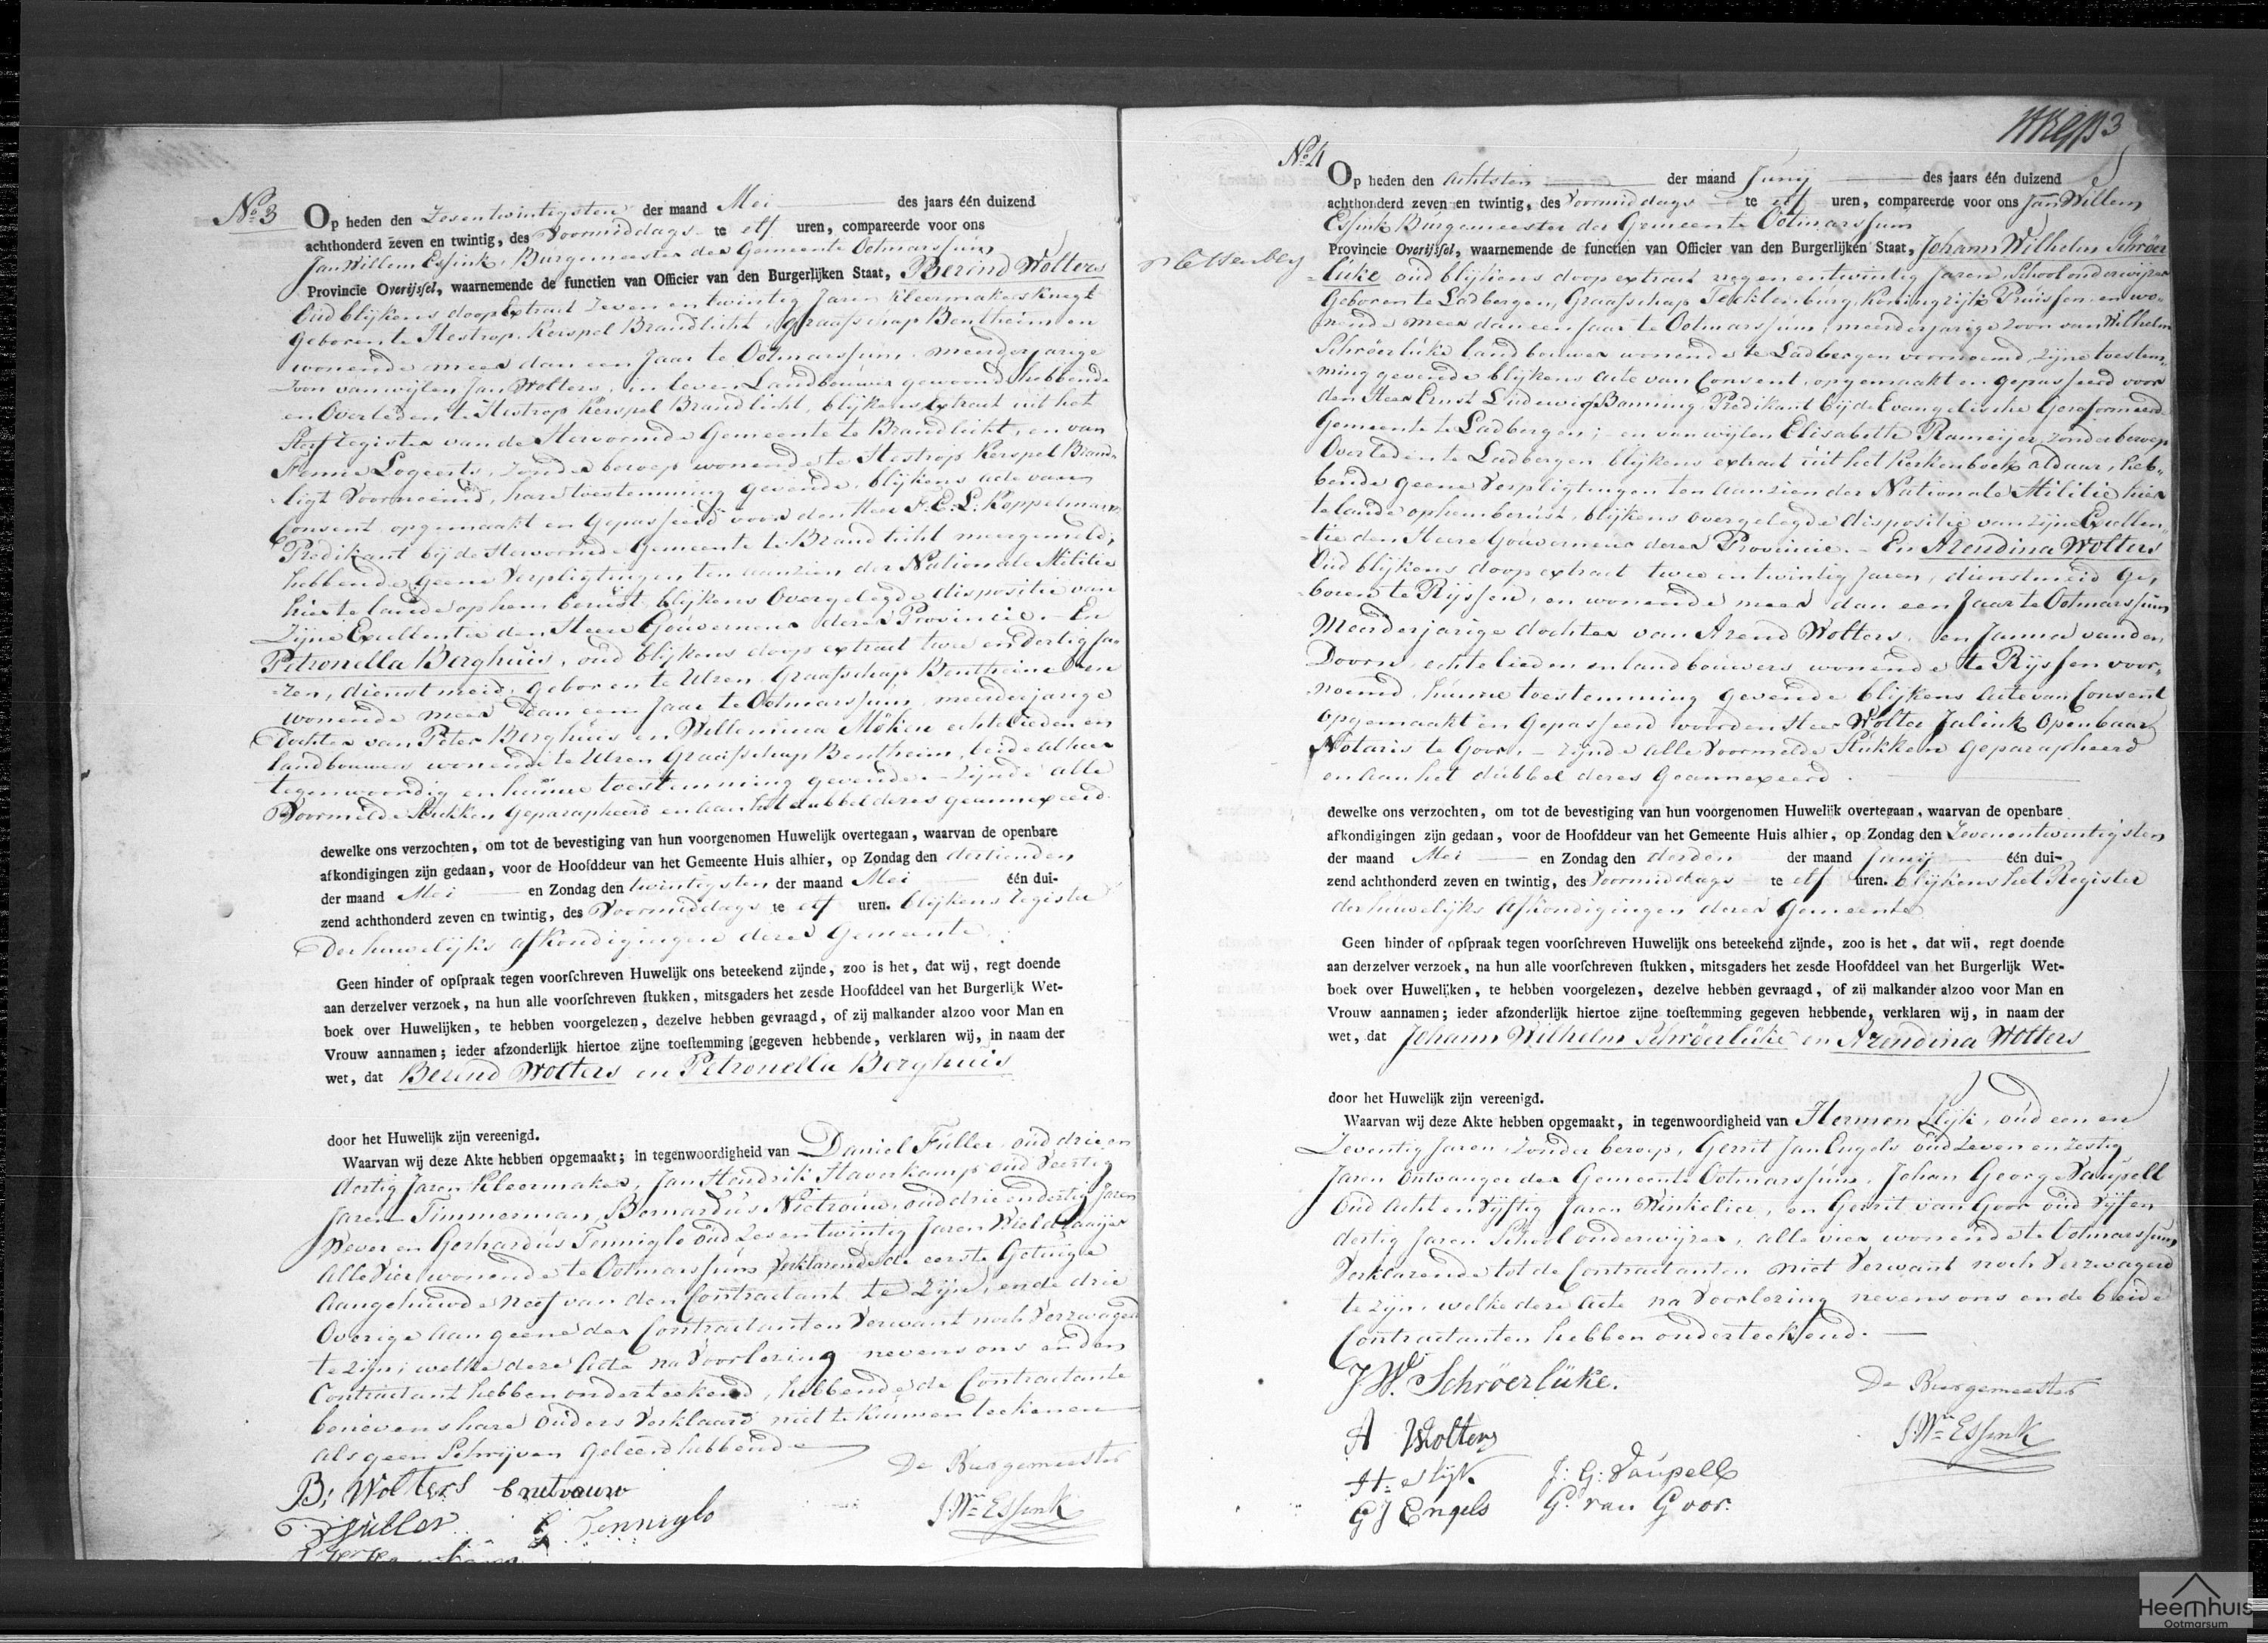 No. 3
Op heden den Zesentwintigsten der maand Mei des jaars één duizend
achthonderd zeven en twintig, des Voormiddags te elf uren, compareerde voor ons
Jan Willem Essink, Burgemeester der Gemeente Ootmarssum
Provincie Overijssel, waarnemende de functien van Officier van den Burgerlijken Staat, Berend Wolters
Oud blijkens doop Extract Zeven en twintig Jaren Kleermakersknegt
Geboren te Hestrop, Kerspel Brandlicht, Graafschap Bentheim en
wonende meer dan een Jaar te Ootmarssum, meerderjarige
Zoon van wijlen Jan Wolters, in leven Landbouwer gewoond hebbende
en Overleden te Hestrop Kerspel Brandlicht, blijkens Extract uit het
Sterf Register van de Hervormde Gemeente te Brandlicht, en van
Fenne Logeerts, zonder beroep wonende te Hestrop Kerspel Brand-
ligt Voornoemd, hare toestemming gevende, blijkens acte van
Consent opgemaakt en Gepasseerd voor den Heer F.C.L. Koppelmann
Predikant bij de Hervormde Gemeente te Brandlicht meergemeld,
hebbende geene Verpligtingen ten aanzien der Nationale Militie
hier te lande op hem berust, blijkens Overgelegde dispositie van
Zijne Excellentie den Heere Gouverneur dezer Provincie. - En
Petronella Berghuis, oud blijkens doop extract twee en dertig Ja-
ren, dienstmeid, geboren te Ulzen Graafschap Bentheim en
wonende meer dan een Jaar te Ootmarssum, meerderjarige
Dochter van Peter Berghuis en Willemina Möken echtelieden en
landbouwers wonende te Ulzen Graafschap Bentheim, beide alhier
tegenwoordig en hunne toestemming gevende. - Zijnde alle
Voormelde Stukken Geparapheerd en aan het dubbel dezes geannexeerd.
dewelke ons verzochten, om tot de bevestiging van hun voorgenomen Huwelijk overtegaan, waarvan de openbare
afkondigingen zijn gedaan, voor de Hoofddeur van het Gemeente Huis alhier, op Zondag den dertienden
der maand Mei en Zondag den twintigsten der maand Mei één dui-
zend achthonderd zeven en twintig, des Voormiddags te elf uren. blijkens register
der huwelijks afkondigingen dezer Gemeente.
Geen hinder of opspraak tegen voorschreven Huwelijk ons beteekend zijnde, zoo is het, dat wij, regt doende
aan derzelver verzoek, na hun alle voorschreven stukken, mitsgaders het zesde Hoofddeel van het Burgerlijk Wet-
boek over Huwelijken, te hebben voorgelezen, dezelve hebben gevraagd, of zij malkander alzoo voor Man en
Vrouw aannamen; ieder afzonderlijk hiertoe zijne toestemming gegeven hebbende, verklaren wij, in naam der
wet, dat Berend Wolters en Petronella Berghuis
door het Huwelijk zijn vereenigd.
Waarvan wij deze Akte hebben opgemaakt; in tegenwoordigheid van Daniel Fuller, oud drie en
dertig Jaren Kleermaker, Jan Hendrik Haverkamp oud Veertig
Jaren Timmerman, Bernardus Nietrouw, oud drie en dertig Jaren
Wever en Gerhardus Tenniglo oud Zes en twintig Jaren Wieldraaijer
Alle Vier wonende te Ootmarssum Verklarende de eerste Getuige
Aangehuwde Neef van den Contractant te zijn, en de drie
Overige aan geene der Contractanten Verwant noch Verzwagerd
te zijn; welke deze Acte na Voorlezing nevens ons en den
Contractant hebben onderteekend, hebbende de Contractante
benevens hare Ouders Verklaard niet te kunnen teekenen
als geen Schrijven geleerd hebbende
De Burgemeester
B; Wolters
J. Wm Essink
Fuller
G Tenniglo
No. 4
Op heden den achtsten der maand Junij des jaars één duizend
achthonderd zeven en twintig, des Voormiddags te elf uren, compareerde voor ons Jan Willem
Essink Burgemeester der Gemeente Ootmarssum
Provincie Overijssel, waarnemende de functien van Officier van den Burgerlijken Staat, Johann Wilhelm Schröer-
lüke oud blijkens doop extract negen en twintig Jaren, School onderwijzer
Geboren te Ladbergen, Graafschap Tecklenburg, Koningrijk Pruissen en wo-
nende meer dan een Jaar te Ootmarssum, meerderjarige zoon van Wilhelm
Schröerlüke landbouwer wonende te Ladbergen voornoemd, zijne toestem-
ming gevende blijkens acte van Consent, opgemaakt en gepasseerd voor
den Heer Ernst Ludewig Banning Predikant bij de Evangelische Gereformeerde
Gemeente te Ladbergen; - en van wijlen Elisabeth Rameijer, zonder beroep
Overleden te Ladbergen blijkens extract uit het Kerkenboek aldaar, heb-
bende geene Verpligtingen ten aanzien der Nationale Militie hier
te lande op hem berust, blijkens overgelegde dispositie van zijne Excellen-
tie den Heere Gouverneur dezer Provincie. - En Arendina Wolters
Oud blijkens doop extract twee en twintig Jaren, dienstmeid ge-
boren te Rijssen, en wonende meer dan een Jaar te Ootmarssum
Meerderjarige dochter van Arend Wolters, en Janna van den
Doorn, echtelieden en landbouwers wonende te Rijssen voor-
noemd, hunne toestemming gevende blijkens acte van Consent
opgemaakt en Gepasseerd voor den Heer Wolter Jalink Openbaar
Notaris te Goor, - zijnde alle Voormelde Stukken Geparapheerd
en aan het dubbel dezes Geannexeerd.
dewelke ons verzochten, om tot de bevestiging van hun voorgenomen Huwelijk overtegaan, waarvan de openbare
afkondigingen zijn gedaan, voor de Hoofddeur van het Gemeente Huis alhier, op Zondag den Zevenentwintigsten
der maand Mei en Zondag den derden der maand Junij één dui-
zend achthonderd zeven en twintig, des Voormiddags te elf uren. blijkens het Register
der huwelijks Afkondigingen dezer Gemeente
Geen hinder of opspraak tegen voorschreven Huwelijk ons beteekend zijnde, zoo is het, dat wij, regt doende
aan derzelver verzoek, na hun alle voorschreven stukken, mitsgaders het zesde Hoofddeel van het Burgerlijk Wet-
boek over Huwelijken, te hebben voorgelezen, dezelve hebben gevraagd, of zij malkander alzoo voor Man en
Vrouw aannamen; ieder afzonderlijk hiertoe zijne toestemming gegeven hebbende, verklaren wij, in naam der
wet, dat Johann Wilhelm Schröerlüke en Arendina Wolters
door het Huwelijk zijn vereenigd.
Waarvan wij deze Akte hebben opgemaakt, in tegenwoordigheid van Hermen Slijk, oud een en
Zeventig Jaren, zonder beroep, Gerrit Jan Engels oud Zeven en Zestig
Jaren Ontvanger der Gemeente Ootmarssum, Johan George Vaupell
Oud Acht en Vijftig Jaren Winkelier, en Gerrit van Goor oud Vijf en
dertig Jaren Schoolonderwijzer, alle vier wonende te Ootmarssum
Verklarende tot de Contractanten niet Verwant noch Verzwagerd
te zijn, welke deze Acte na Voorlezing nevens ons en de beide
Contractanten hebben onderteekend.
J.W. Schröerlüke.
De Burgemeester
A Wolters
J. Wm Essink
H. Slijk
J: G: Vaupell
GJ Engels
G. van Goor.
Heemhuis
Ootmarsum